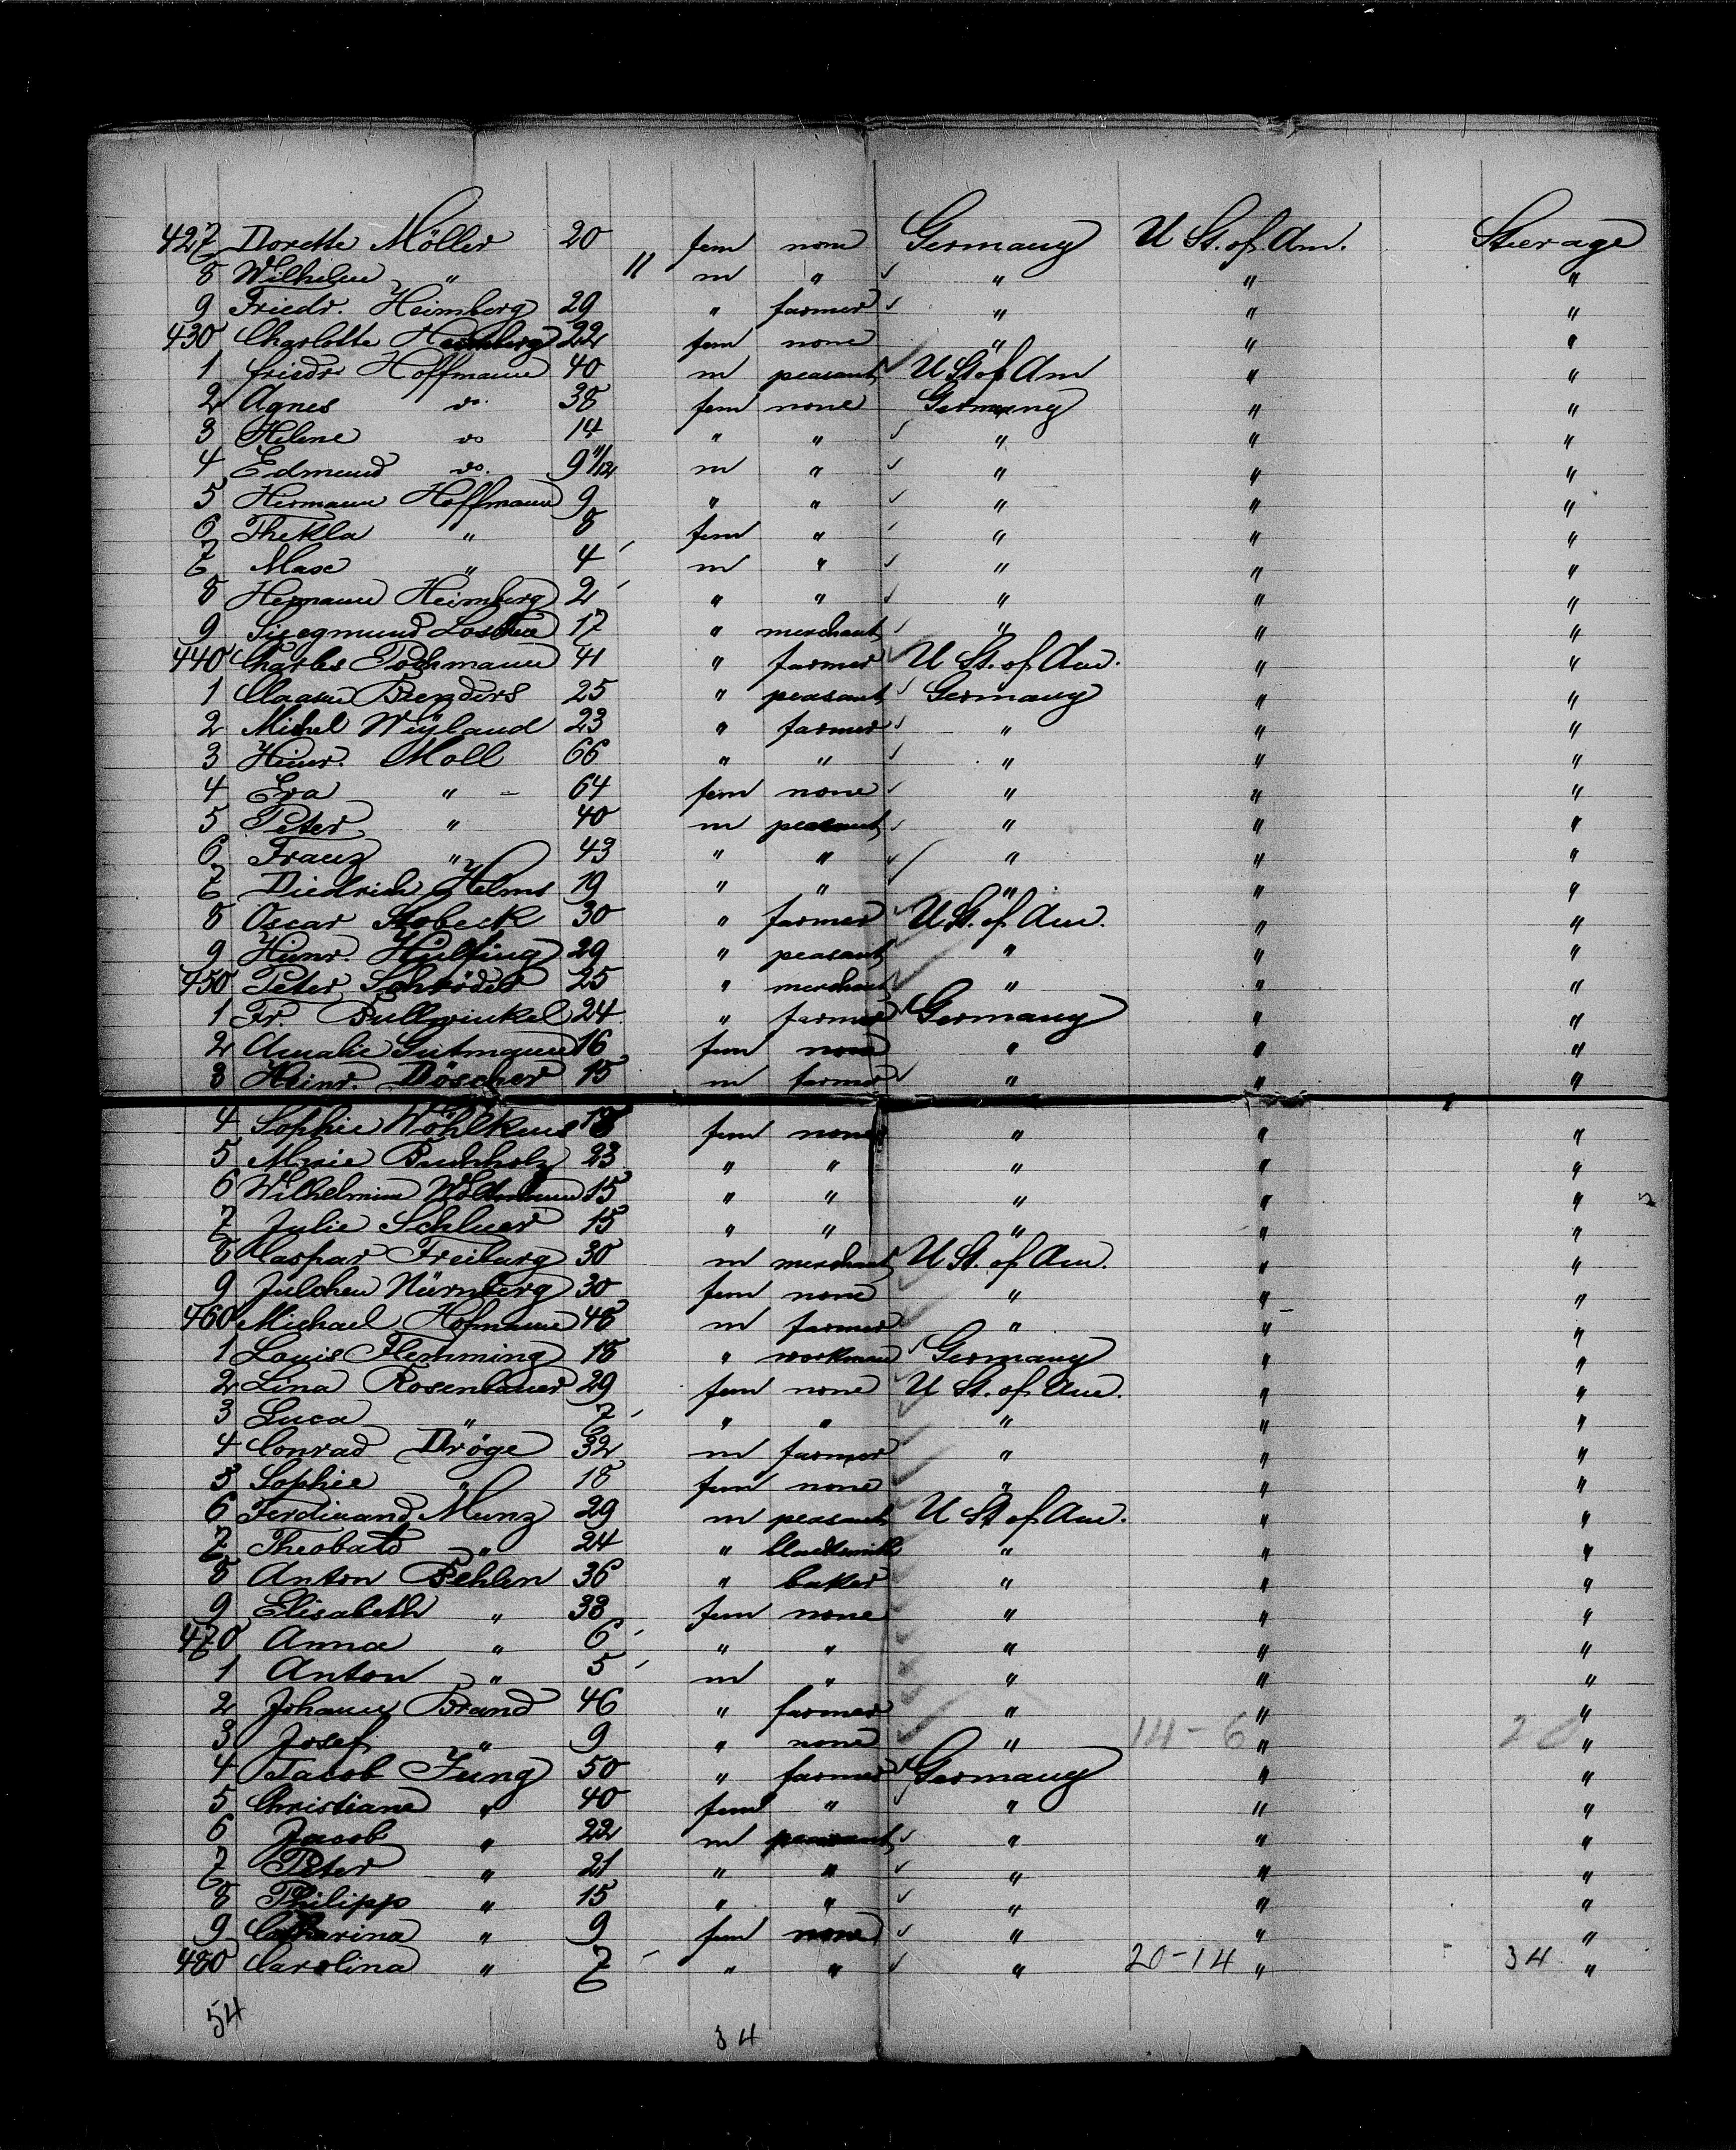 427 Dorette Möller 20 fem none Germany U St. of Am. Steerage
8 Wilhelm " 11 m " " " "
9 Friedr. Heimberg 29 " farmer " " "
430 Charlotte Heimberg 22 fem none " " "
1 Friedr. Hoffmann 40 m peasant U St of Am " "
2 Agnes do. 38 fem none Germany " "
3 Helene do 14 " " " " "
4 Edmund do. 9 11/12 m " " " "
5 Hermann Hoffmann 9 " " " " "
6 Thekla " 8 fem " " " "
7 Max " 4 m " " " "
8 Hermann Heimberg 2 " " " " "
9 Siegmund 17 " merchant " " "
440 Charles Pochmann 41 " farmer U St. of Am. " "
1 Claasen 25 " peasant Germany " "
2 Michel Weyland 23 " farmer " " "
3 Heinr. Moll 66 " " " " "
4 Eva " 64 fem none " " "
5 Peter " 40 m peasant " " "
6 Franz " 43 " " " " "
7 Diedrich Helms 19 " " " " "
8 Oscar Stobeck 30 " farmer U St. of Am. " "
9 Heinr. Hülfing 29 " peasant " " "
450 Peter Schröder 25 " merchant " " "
1 Fr. Bullwinkel 24 " farmer Germany " "
2 Amalie Gutmann 16 fem none " " "
3 Heinr. Döscher 15 m farmer " " "
4 Sophie Wöhlkens 18 fem none " " "
5 Marie Buchholz 23 " " " " "
6 Wilhelmine 15 " " " " "
7 Julie Schluer 15 " " " " "
8 Caspar Freiburg 30 m merchant U St. of Am. " "
9 Julchen Nürnberg 30 fem none " " "
460 Michael Hofmann 48 m farmer " " "
1 Louis Flemming 18 " workman Germany " "
2 Lina Rosenbauer 29 fem none U St. of Am. " "
3 Luca " 7 " " " " "
4 Conrad Dröge 32 m farmer " " "
5 Sophie " 18 fem none " " "
6 Ferdinand Munz 29 m peasant U St of Am. " "
7 Theobald " 24 " blacksmith " " "
8 Anton Behlen 36 " baker " " "
9 Elisabeth " 33 fem none " " "
470 Anna " 6 " " " " "
1 Anton " 5 m " " " "
2 Johann Brand 46 " farmer " " "
3 Josef " 9 " none " 14-6 " 20 "
4 Jacob Jung 50 " farmer Germany " "
5 Christiane " 40 fem " " " "
6 Jacob " 22 m peasant " " "
7 Peter " 21 " " " " "
8 Philipp " 15 " " " " "
9 Catharina " 9 fem none " " "
480 Carolina " 7 " " " 20-14 " 34 "
54
34